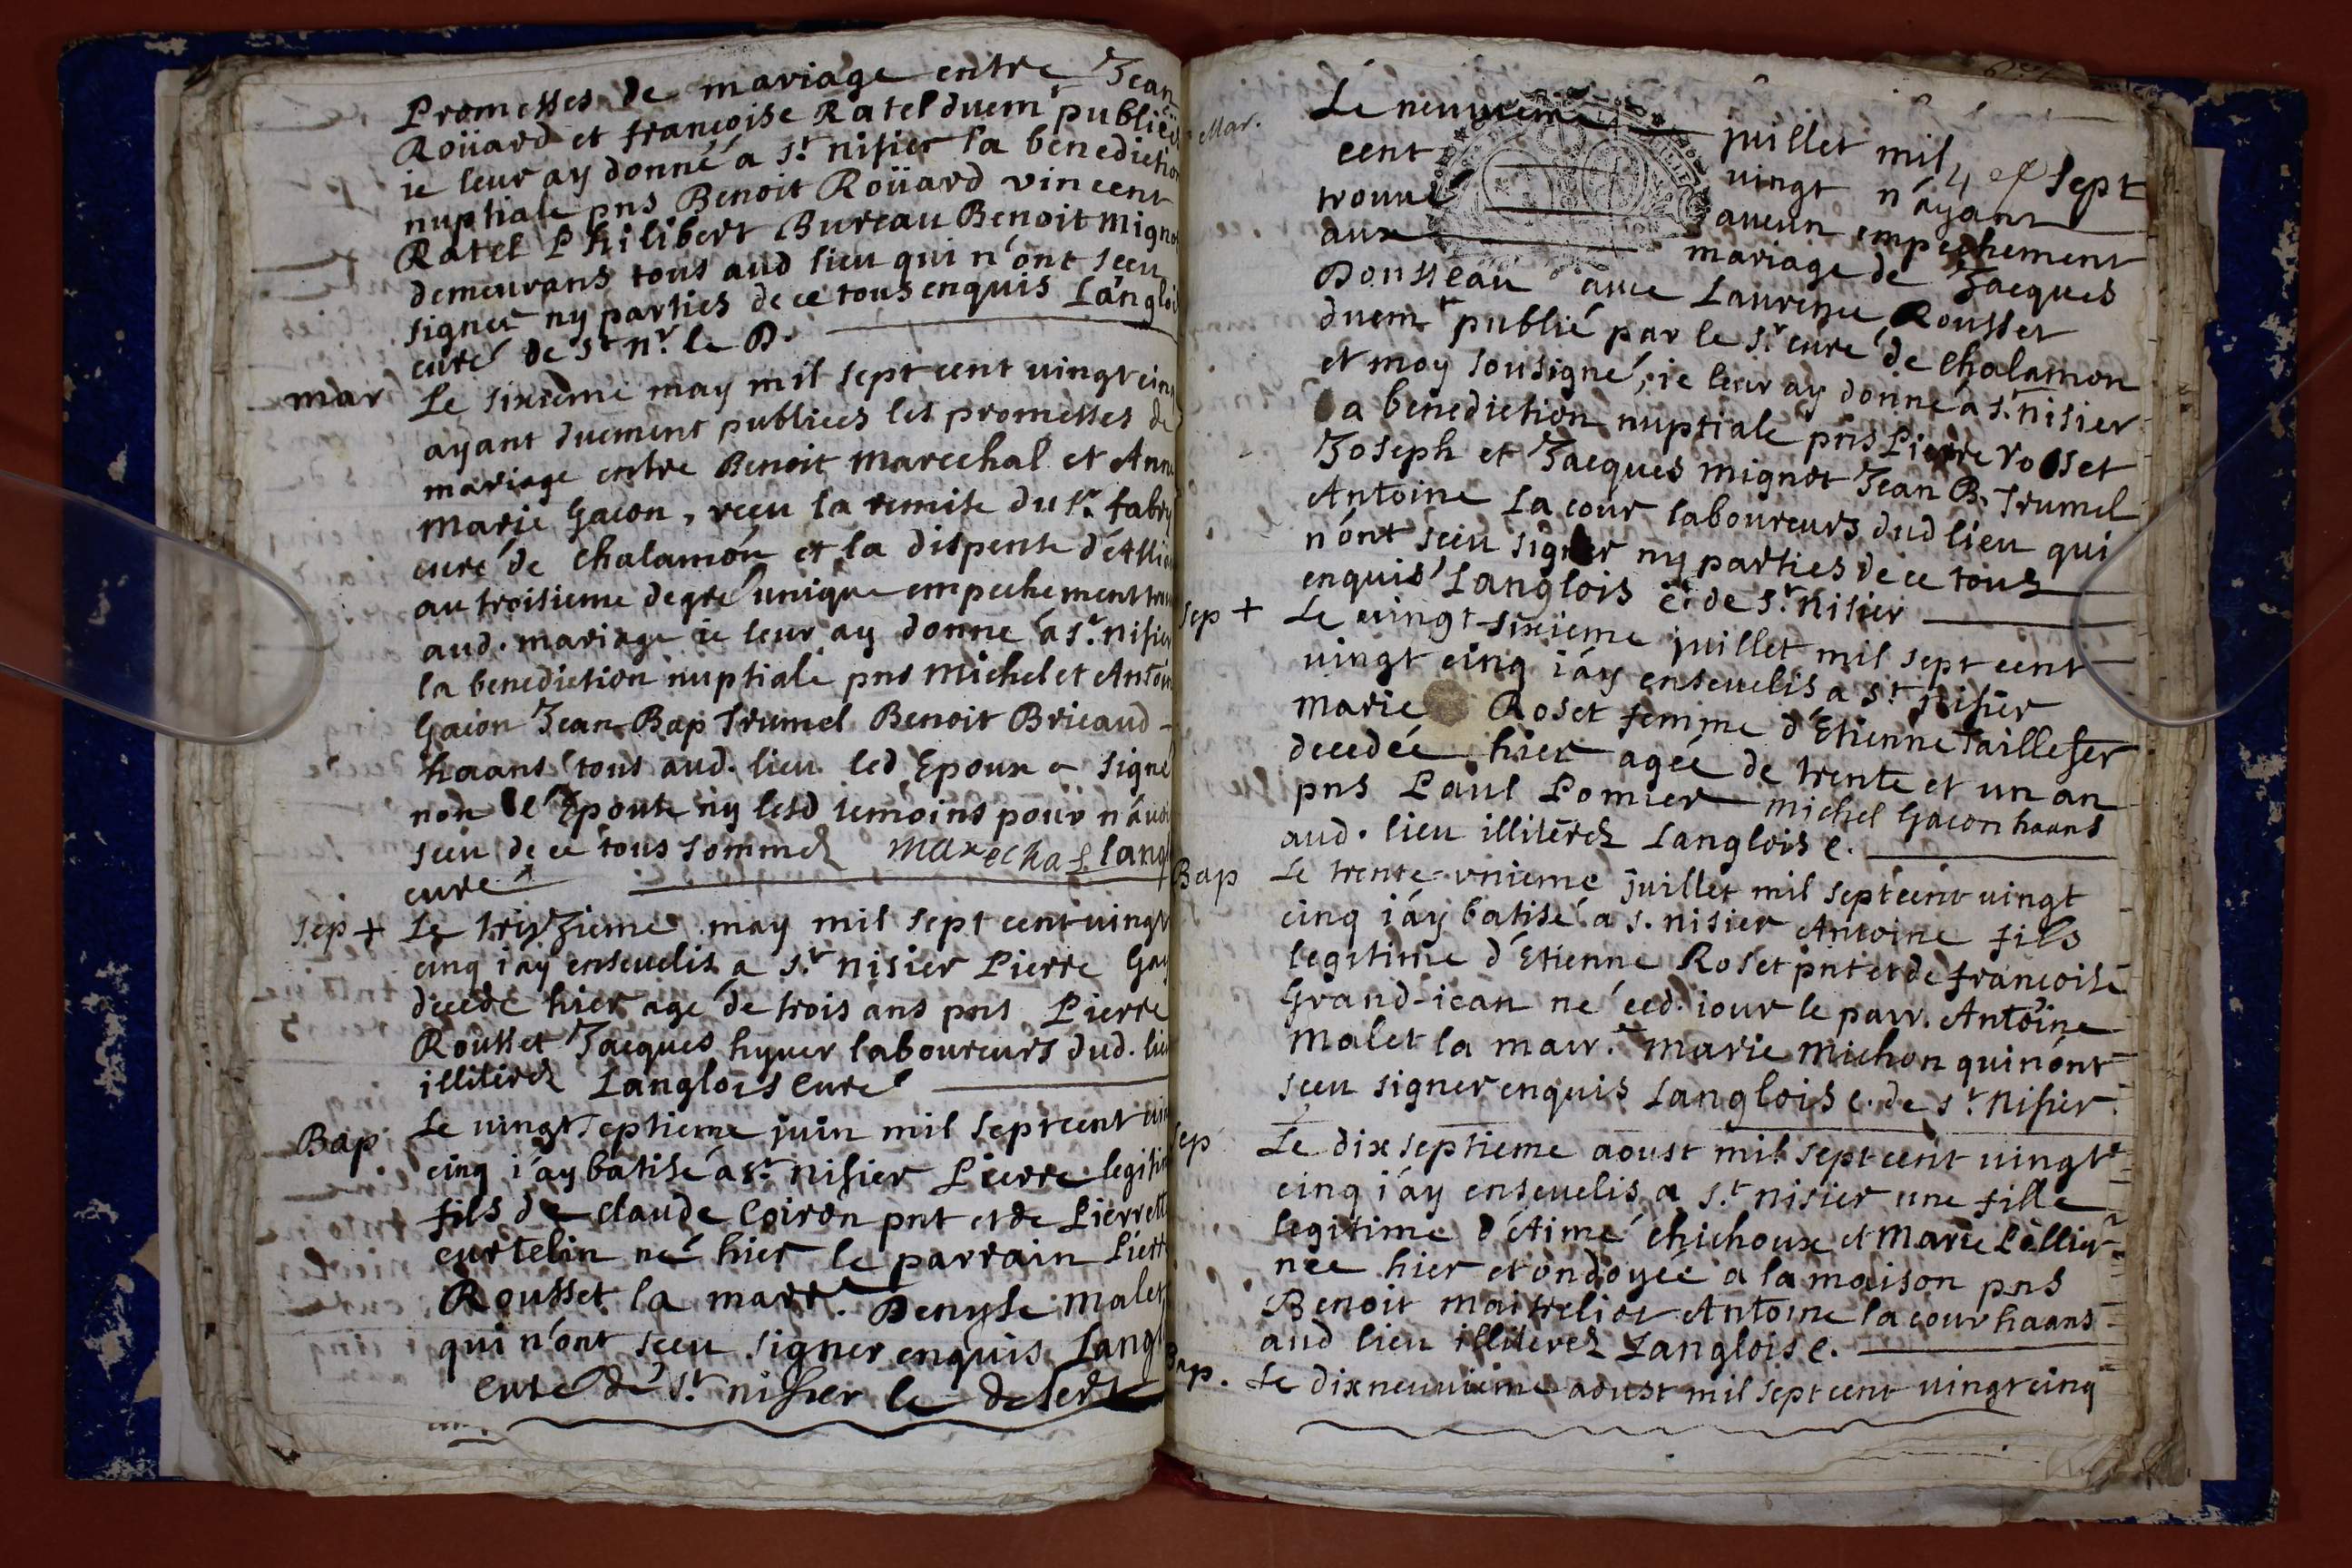 Promesses de mariage entre Jean
Roüard et francoise Ratel duemt publiées
ie leur ay donné a st nisier la benediction
nuptiale pns Benoit Roüard vincent
Ratel Philibert Bureau Benoit Mignot
demeurans tous aud lieu qui n'ont sceu
signer ny parties de ce tous enquis Langlois
curé de st nr. le D.
mar
Le sixieme may mil sept cent vingt cinq
ayant duement publiees les promesses de
mariage entre Benoit marechal et Anne
Marie Gacon, receu la remise du sr. fabry
curé de chalamon et la dispense d'Allian
au troisieme degré unique empechement trou
aud. mariage ie leur ay donné a st nisier
la benediction nuptiale pns Michel et Antoin
Gacon Jean Bap Trumel Benoit Bricaud
haans tous aud. lieu led Epoux a signé
non l'Epouse ny lesd temoins pour n'avoi
sceu de ce tous sommez marechal lang
curé
sep +
Le treizieme may mil sept cent vingt
cinq i'ay enseuelis a st nisier Pierre Gay
decede hier agé de trois ans pns Pierre
Rousset Jacques hyuer laboureurs dud. lieu
illiterez Langlois Curé
Bap
Le vingt septieme juin mil sept cent vin
cinq i'ay batisé a st nisier Pierre legitim
fils de claude Coiron pnt et de Pierrett
curtelin né hier le parrain Pierre
Rousset la marr. Denyse malet
qui n'ont sceu signer enquis Langl
Curé de st nisier le desert
Mar.
Le neuuieme juillet mil sept
cent vingt n'ayant
trouué aucun empechement
aux mariage de Jacques
Dousseau auec Laurence Rousset
duemt publié par le sr curé de chalamon
et moy sousigné, ie leur ay donné a st nisier
la benediction nuptiale pns Pierre rosset
Joseph et Jacques mignot Jean B. Trumel
Antoine La cour laboureurs dud lieu qui
n'ont sceu signer ny parties de ce tous
enquis Langlois c. de st nisier
sep +
Le vingt-sixieme juillet mil sept cent
vingt cinq i'ay enseuelis a st nisier
marie Roset femme d'Etienne Taillefer
decedée hier agée de trente et un an
pns Paul Pomier michel Gacon haans
aud. lieu illiterez Langlois c.
Bap
Le trente-vnieme juillet mil sept cent vingt
cinq i'ay batisé a s. nisier Antoine fils
legitime d'Etienne Roset pnt et de francoise
Grand-iean né ced. iour le parr. Antoine
Malet la marr. marie michon qui n'ont
sceu signer enquis Langlois c. de st nisier.
sep
Le dix septieme aoust mil sept cent vingt
cinq i'ay enseuelis a st nisier une fille
legitime d'Aimé chichoux et Marie Pellier
née hier et ondoyée a la maison pns
Benoit Maitrelior Antoine la cour haans
aud lieu illiterez Langlois c.
Bap.
Le dixneuuieme aoust mil sept cent vingt cinq